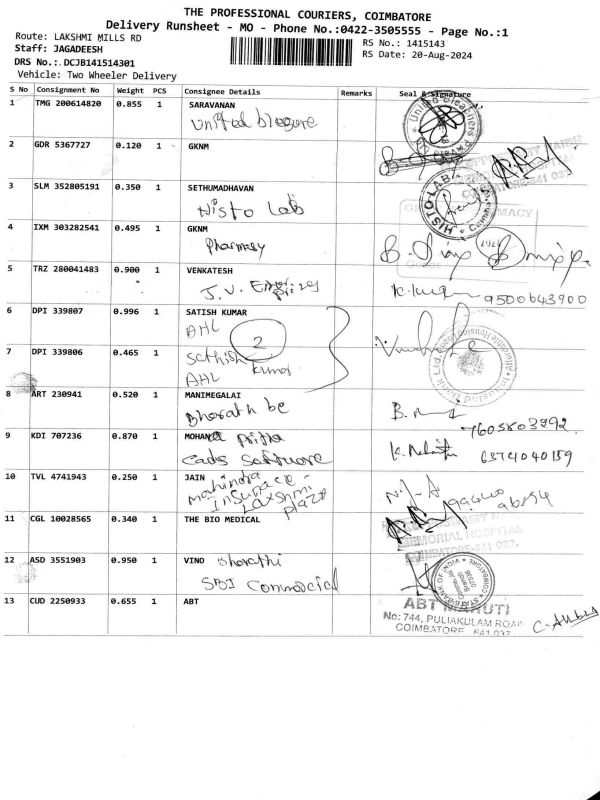 THE PROFESSIONAL COURIERS, COIMBATORE
Delivery Runsheet - MO - Phone No.:0422-3505555 - Page No.:1
Route: LAKSHMI MILLS RD
RS No.: 1415143
Staff: JAGADEESH
RS Date: 20-Aug-2024
DRS No.: DCJB141514301
Vehicle: Two Wheeler Delivery
S No Consignment No Weight PCS Consignee Details Remarks Seal & Signature
1 TMG 200614820 0.855 1 SARAVANAN
United
2 GDR 5367727 0.120 1 GKNM
3 SLM 352805191 0.350 1 SETHUMADHAVAN
Histo Lab
HISTO LAB
4 IXM 303282541 0.495 1 GKNM
Pharmasy
5 TRZ 280041483 0.900 1 VENKATESH
J.V.
9500643900
6 DPI 339807 0.996 1 SATISH KUMAR
AHL
2
7 DPI 339806 0.465 1 Sathish Kumar
AHL
8 ART 230941 0.520 1 MANIMEGALAI
Bharath be
7605803992
9 KDI 707236 0.870 1 MOHANA Priya
Cads Software
6374040159
10 TVL 4741943 0.250 1 JAIN
Mahindra
Insurace -
Lakshmi
Plaza
11 CGL 10028565 0.340 1 THE BIO MEDICAL
MEMORIAL HOSPITAL
COIMBATORE-641 037.
12 ASD 3551903 0.950 1 VINO Bharathi
SBI Commercial
13 CUD 2250933 0.655 1 ABT
ABT MARUTI
No: 744, PULIAKULAM ROAD
COIMBATORE 641 037